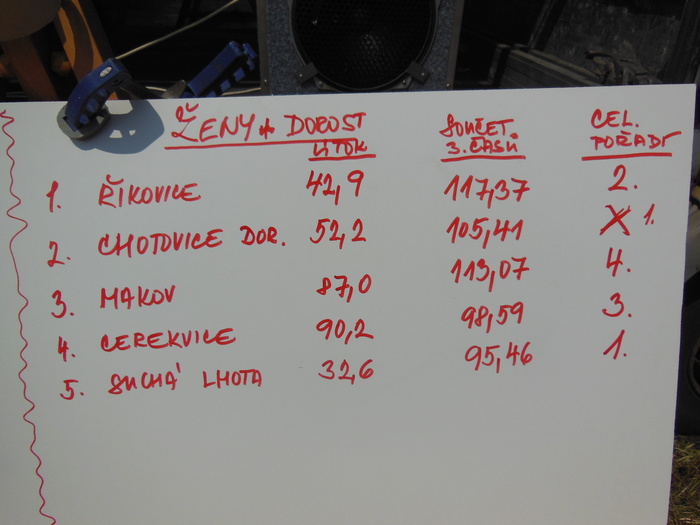 ŽENY + DOROST SOUČET. CEL.
ÚTOK 3. ČASŮ POŘADÍ
1. ŘÍKOVICE 42,9 117,37 2.
2. CHOTOVICE DOR. 52,2 105,41 X 1.
3. MAKOV 87,0 113,07 4.
4. CEREKVICE 90,2 98,59 3.
5. SUCHÁ LHOTA 32,6 95,46 1.